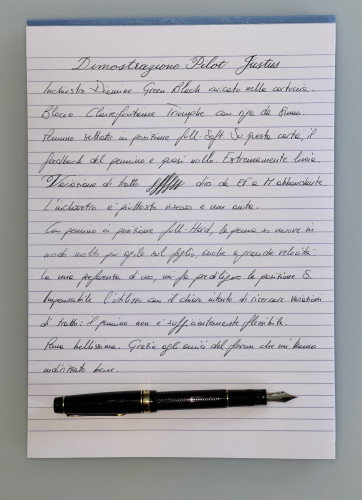 Dimostrazione Pilot Justus
Inchiostro Diamine Green Black caricato nella cartuccia.
Blocco Clairefontaine Triomphe con riga da 8mm.
Pennino settato in posizione full-Soft. Su questa carta, il
feedback del pennino è quasi nullo. Estremamente liscia.
Variazione di tratto direi da EF a M abbondante.
L'inchiostro è piuttosto viscoso e non aiuta.
Con pennino in posizione full-Hard, la penna si muove in
modo molto più agile sul foglio, anche a grande velocità.
La mia preferenza d'uso, mi fa prediligere la posizione S.
Impensabile l'utilizzo con il chiaro intento di ricercare variazioni
di tratto: il pennino non è sufficientemente flessibile.
Penna bellissima. Grazie agli amici del forum che mi hanno
indirizzato bene.